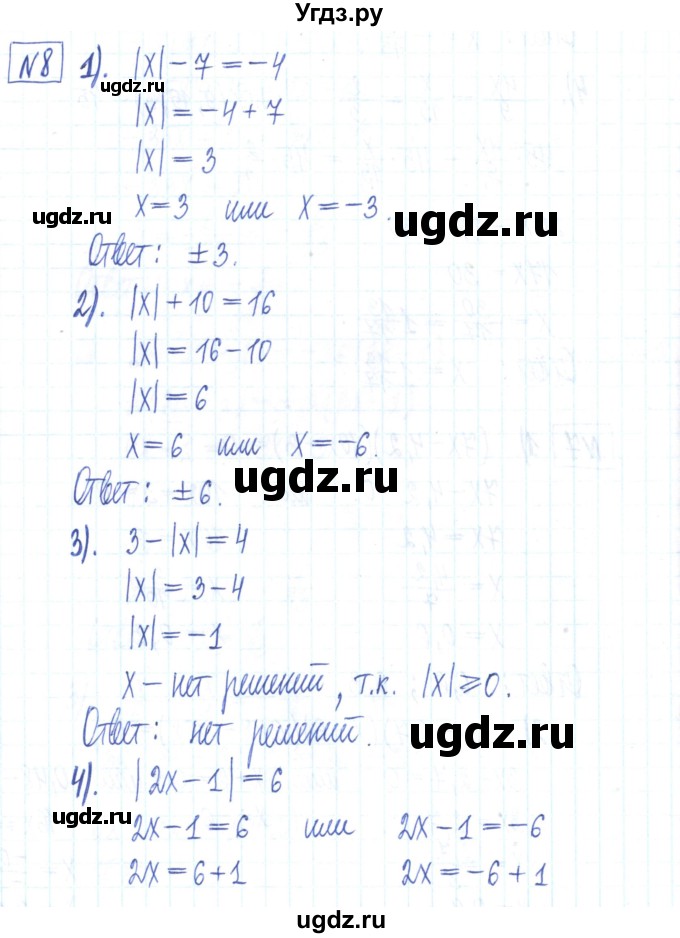 Угдз.ру
№8 1). |x| - 7 = -4
ugdz.ru ugdz.ru
|x| = -4 + 7
|x| = 3
x = 3 или x = -3.
ugdz.ru ugdz.ru
Ответ: ± 3.
2). |x| + 10 = 16
|x| = 16 - 10
|x| = 6
x = 6 или x = -6.
ugdz.ru
Ответ: ± 6.
ugdz.ru
3). 3 - |x| = 4
|x| = 3 - 4
|x| = -1
x - нет решений, т.к. |x| ⩾ 0.
Ответ: нет решений.
ugdz.ru
4). |2x - 1| = 6
ugdz.ru
2x - 1 = 6 или 2x - 1 = -6
2x = 6 + 1 2x = -6 + 1
ugdz.ru